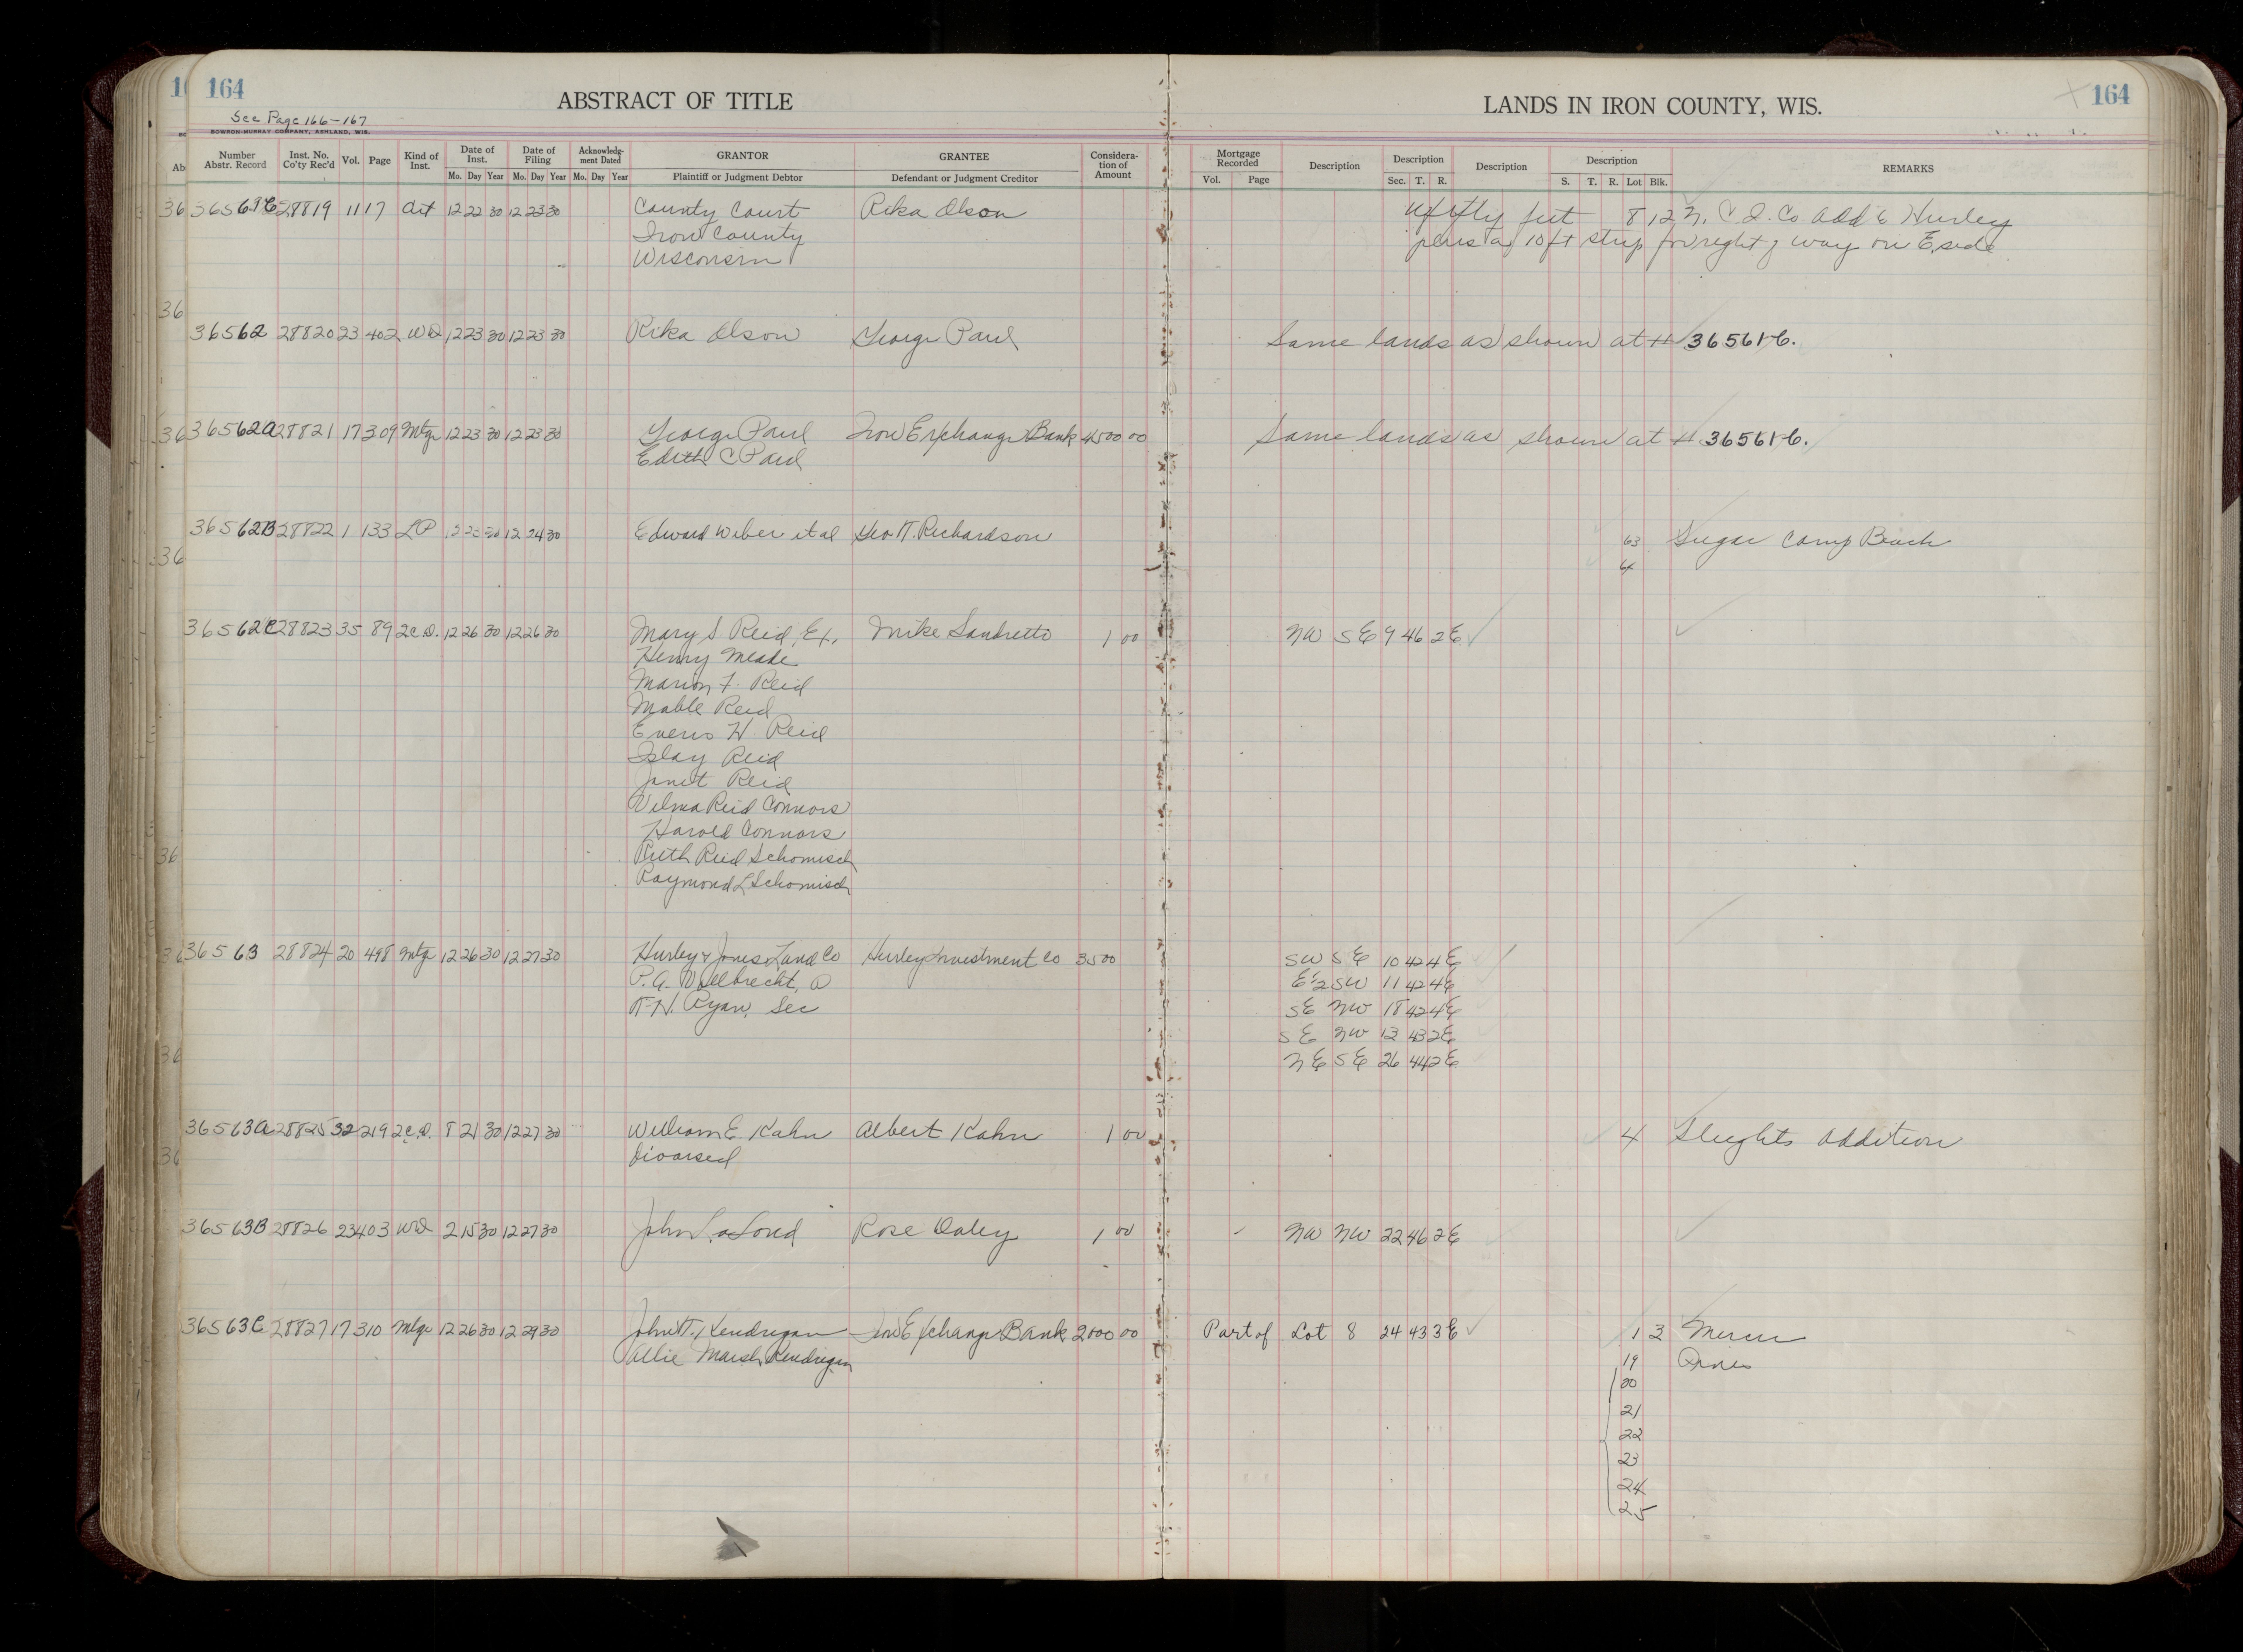 164
See Page 166-167
BOWRON-MURRAY COMPANY, ASHLAND, WIS.
ABSTRACT OF TITLE
LANDS IN IRON COUNTY, WIS.
164
Number Abstr. Record Inst. No. Co'ty Rec'd Vol. Page Kind of Inst. Date of Inst. Mo. Day Year Date of Filing Mo. Day Year Acknowledgment Dated Mo. Day Year GRANTOR Plaintiff or Judgment Debtor GRANTEE Defendant or Judgment Creditor Consideration of Amount Mortgage Recorded Vol. Page Description Description Sec. T. R. Description Description S. T. R. Lot Blk. REMARKS
28819 11 17 12 22 30 12 23 30 County Court Rika Olson 8 12 Co Add Hurley
Iron County 10 ft strip for right of way on E side
Wisconsin
36562 28820 23 402 WD 12 23 30 12 23 30 Rika Olson George Paul Same lands as shown at # 36561-C.
36562A 28821 17 309 Mtge 12 23 30 12 23 30 George Paul Iron Exchange Bank 4500 00 Same lands as shown at # 36561-C.
Edith C Paul
36562B 28822 1 133 LP 12 23 30 12 24 30 Edward Weber et al Geo H. Richardson 63 Sugar Camp Beach
4
36562C 28823 35 89 2C.D. 12 26 30 12 26 30 Mary S Reid, Ex, Mike Sandretto 1 00 NW SE 9 46 2E
Henry Meade
Marion F. Reid
Mable Reid
H Reid
Islay Reid
Janet Reid
Velma Reid Connors
Harold Connors
Ruth Reid Schomisch
Raymond L Schomisch
36563 28824 20 498 Mtge 12 26 30 12 27 30 Hurley & Jones Land Co Hurley Investment Co 3500 SW SE 10 42 4E
E½ SW 11 42 4E
Ryan, Sec SE NW 18 42 4E
SE NW 13 43 2E
NE SE 26 44 2E
36563A 28825 32 219 2C.D. 8 21 30 12 27 30 William E Kahn Albert Kahn 1 00 4 Sleights Addition
divorsed
36563B 28826 23 403 WD 2 15 30 12 27 30 John LaLond Rose Daley 1 00 NW NW 22 46 2E
36563C 28827 17 310 Mtge 12 26 30 12 29 30 John Kendrigan Iron Exchange Bank 2000 00 Part of Lot 8 24 43 3E 1 3 Mercer
Allie Marsh Kendrigan 19 Pines
20
21
22
23
24
25